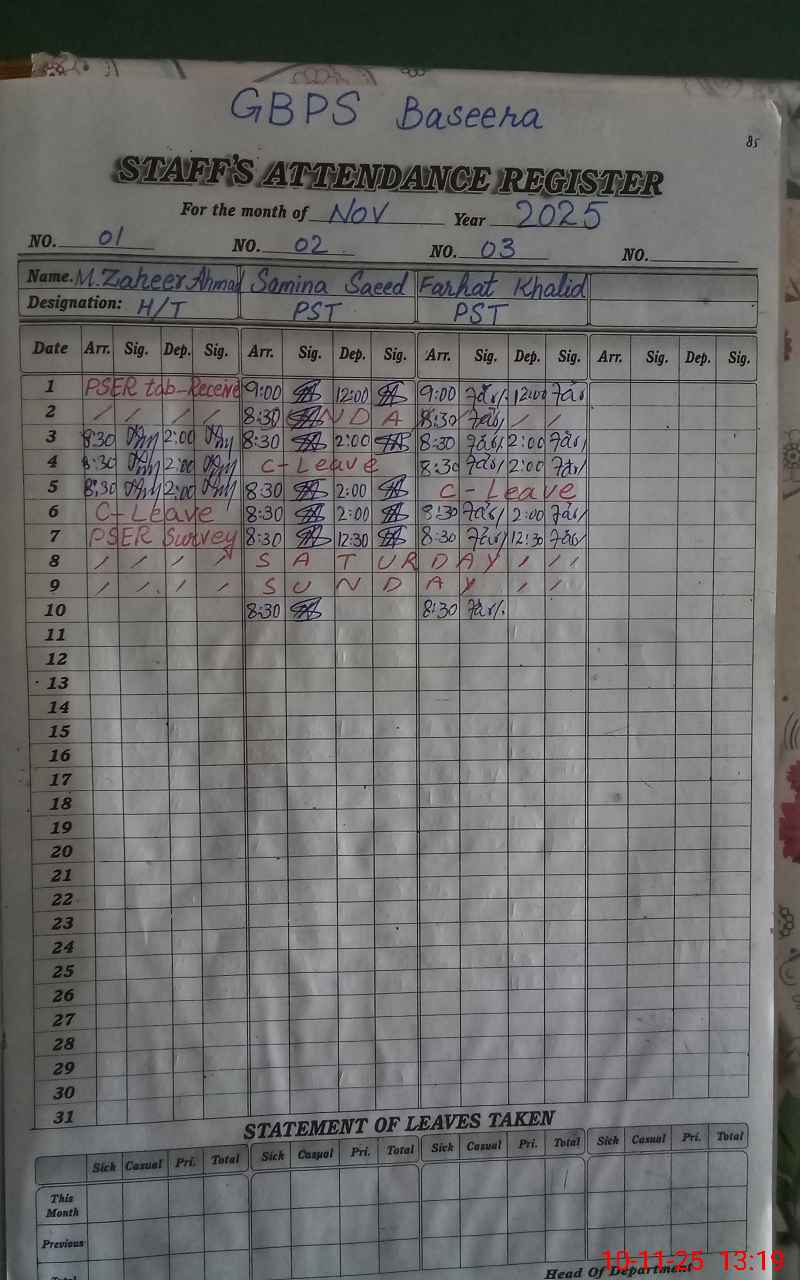 GBPS Baseera
85
STAFF'S ATTENDANCE REGISTER
For the month of Nov Year 2025
NO. 01 NO. 02 NO. 03 NO.
Name. M. Zaheer Ahmad Samina Saeed Farhat Khalid
Designation: H/T PST PST
Date Arr. Sig. Dep. Sig. Arr. Sig. Dep. Sig. Arr. Sig. Dep. Sig. Arr. Sig. Dep. Sig.
1 PSER tab-Receive 9:00 12:00 9:00 12:00
2 / / / / 8:30 N D A 8:30 / /
3 8:30 2:00 8:30 2:00 8:30 2:00
4 8:30 2:00 C-Leave 8:30 2:00
5 8:30 2:00 8:30 2:00 C-Leave
6 C-Leave 8:30 2:00 8:30 2:00
7 PSER Survey 8:30 12:30 8:30 12:30
8 / / / / S A T U R D A Y / / /
9 / / / / S U N D A Y / /
10 8:30 8:30
11
12
13
14
15
16
17
18
19
20
21
22
23
24
25
26
27
28
29
30
31
STATEMENT OF LEAVES TAKEN
Sick Casual Pri. Total Sick Casual Pri. Total Sick Casual Pri. Total Sick Casual Pri. Total
This Month
Previous
Head Of Department
10-11-25 13:19